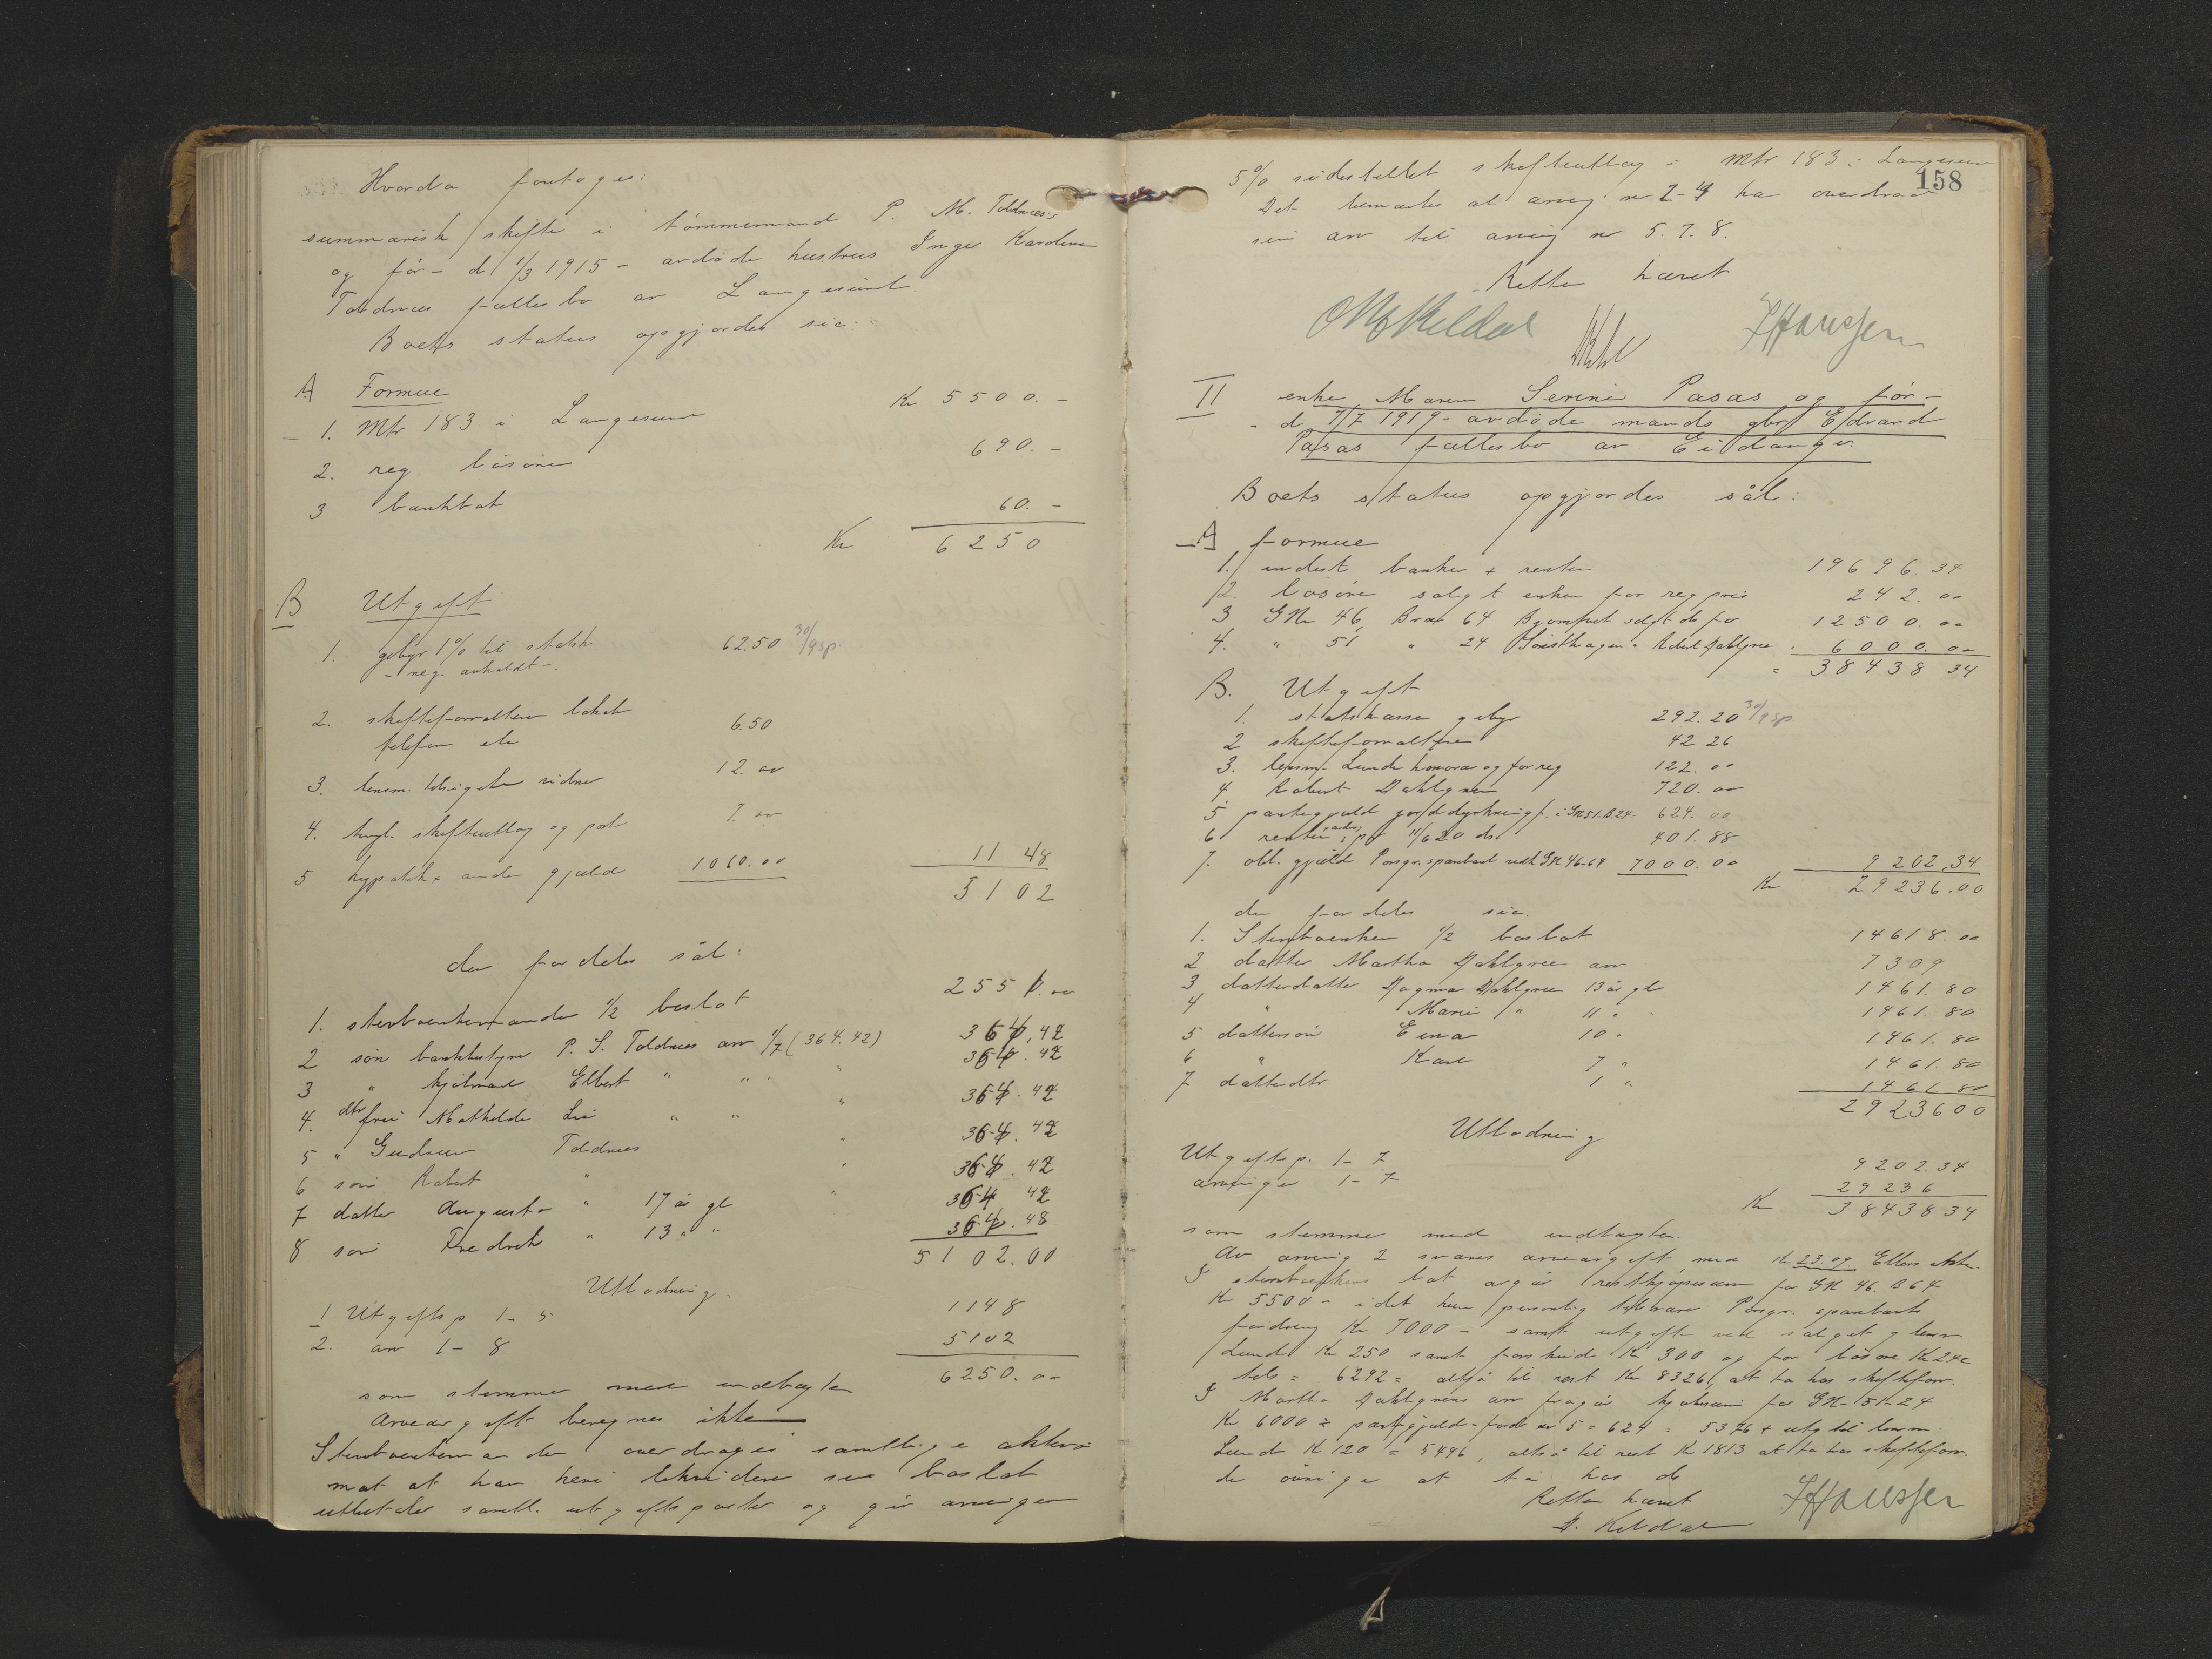 Hvorda foretoges:
summarisk skifte i tømmermand P. M. Toldnæs's
og før - d 1/3 1915 - avdøde hustrus Inger Karoline
Toldnæs fællesbo av Langesund.
Boets status opgjordes sål:
A Formue
1. Mtr 183 i Langesund Kr 5500.-
2. reg løsøre 690.-
3 bankbok 60.-
Kr 6250
B Utgift
1. gebyr 1% til statsk 62.50 30/9 sp.
- reg. anholdt -
2. skifteforvalteren lokale
telefon etc 6.50
3. lensm. tilsigelse vidner 12.00
4. tingl. skifteutlæg og pat 7.00
5 hypotek + anden gjæld 1060.00 1148
5102
der fordeles sål:
1. stervboenkemanden 1/2 boslot 2551.00
2 søn bankbestyrer P. S. Toldnæs arv 1/7 (364.42) 364.42
3 " Elbert " " " 364.42
4. dtr frue Mathilde Lie " " " 364.42
5 " Gudrun Toldnæs " 364.42
6 søn Robert " " 364.42
7 datter Augusta " 17 år gl " 364 42
8 søn Fredrik " 13 " " 364.48
5102.00
Utlodning.
1 Utgiftsp 1-5 1148
2. arv 1-8 5102
6250.00
som stemmer med indtægten
Arveavgift beregnes ikke
Stervboenkemanden overdrages samtlige aktiva
mot at han heri likviderer sin boslot
utbetaler samtl. utgiftsposter og gir arvingen
158
5% sidestillet skifteutlæg i Mtr 183 i Langesund
Det bemærkes at arving nr 2-4 har overdraget
sin arv til arving nr 5. 7. 8.
Retten hævet
O M Kildal
J Hansen
II enke Maren Serine Pasas og før -
- d 7/7 1919 - avdøde mands gbr Edvard
Pasas fællesbo av Eidanger.
Boets status opgjordes sål:
A formue
1. indest. banker + renter 19696.34
2. løsøre solgt enken for reg pris 242.00
3 GNr 46 Brnr 64 solgt do for 12500.00
4. " 51 " 24 Robert Dahlgren 6000.00
" 38438 34
B. Utgift
1. statskassen gebyr 292.20 30/9 sp.
2 skifteforvalteren 42 26
3. lensm. Lunde honorar og forreg 122.00
4. Robert Dahlgren 720.00
5. pantegjæld jorddyrkningsf. i GN 51 B. 24. 624.00
6 renter pr 11/6 20 do. 401.88
7. obl. gjæld Porsgr. sparebank vedk GN 46-64 7000.00 9202,34
Kr 29236.00
der fordeles sål.
1. Stervboenken 1/2 boslot 14618.00
2 datter Martha Dahlgren arv 7309
3 datterdatter Dagmar Dahlgren 13 år gl 1461.80
4 " Marie " 11 " 1461.80
5 dattersøn Einar 10 " 1461.80
6 " Karl 7 " 1461.80
7 datterdtr 1 " 1461.80
2923600
Utlodning
Utgiftsp. 1-7 9202.34
arvinger 1-7 29236
Kr 38438 34
som stemmer med indtægten.
Av arving 2 svares arveavgift med Kr 23.09. Ellers ikke.
I stervboenkens lot avgår restkjøpesum for GN 46. B 64
Kr 5500 - idet hun personlig tilsvarer Porsgr. sparebanks
fordring Kr 7000 - samt utgifter ved salget g lensm
Lund Kr 250 samt forskud Kr 300 og for løsøre Kr 242
tils = 6292 = altså til rest Kr 8326, at ta hos skifteforv.
I Martha Dahlgrens arv fragår kjøpesum for GN- 51-24
Kr 6000 ÷ pantegjæld - post nr 5 = 624 = 5376 + utg til lensm.
Lund Kr 120 = 5496, altså til rest Kr 1813 at ta hos skifteforv.
de øvrige at ta hos do
Retten hævet J Hansen
Kildal